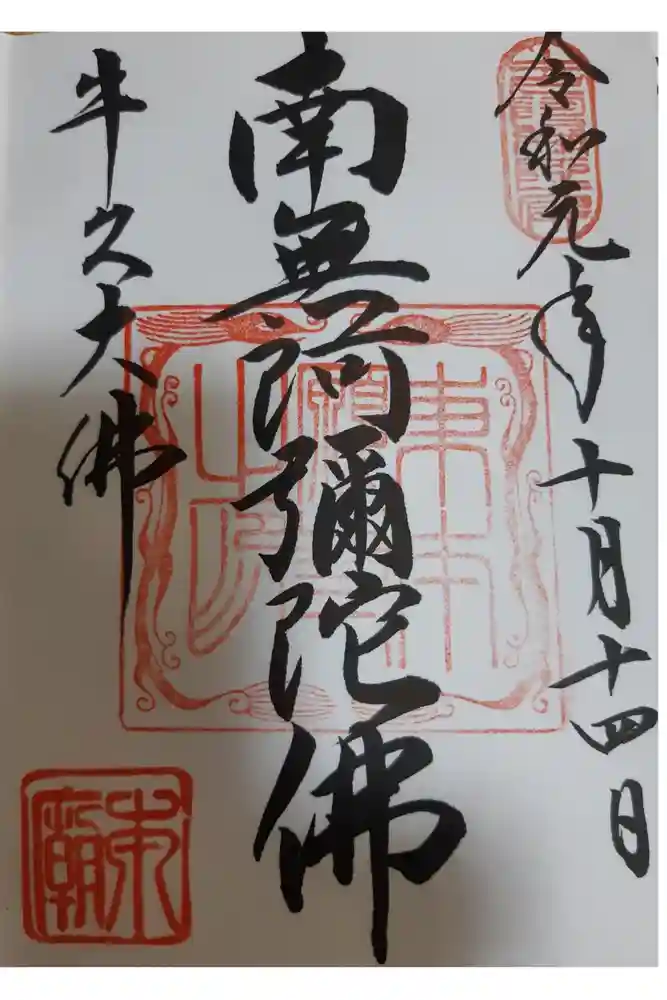 令和元年十月十四日
南無阿彌陀佛
牛久大佛